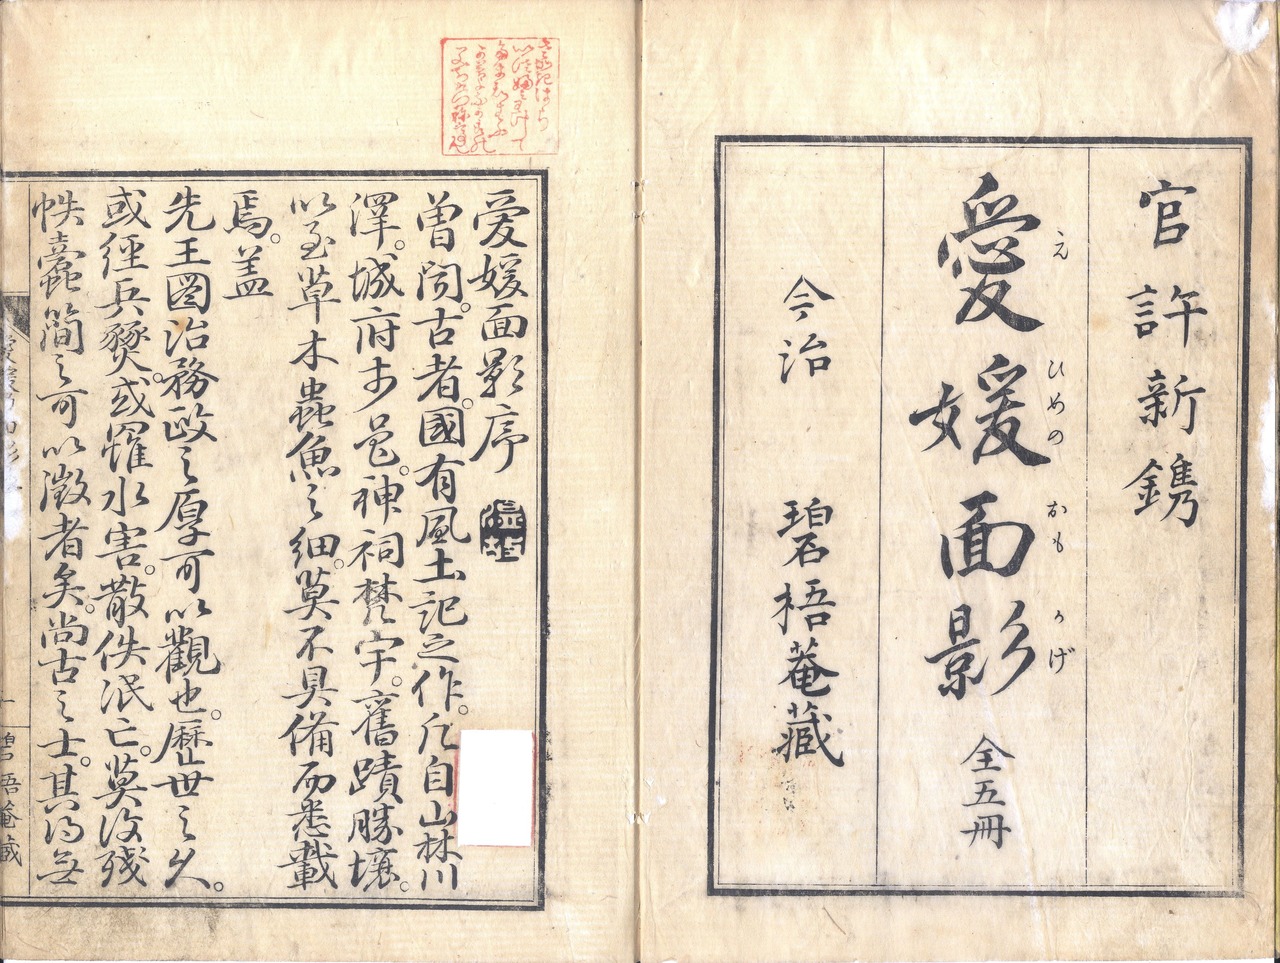 官許新鐫
愛媛面影 全五冊
えひめのおもかげ
今治 碧梧菴藏
愛媛面影序
曽聞。古者。國有風土記之作。凡自山林川
澤。城府市邑。神祠梵宇。舊蹟勝壤。
以至草木蟲魚之細。莫不具備而悉載
焉。蓋
先王圖治務政之厚可以觀也。歷世之久。
或經兵燹。或罹水害。散佚泯亡。莫復殘
帙蠹簡之可以徵者矣。尚古之士。其得無
愛媛面影
一
碧梧菴藏